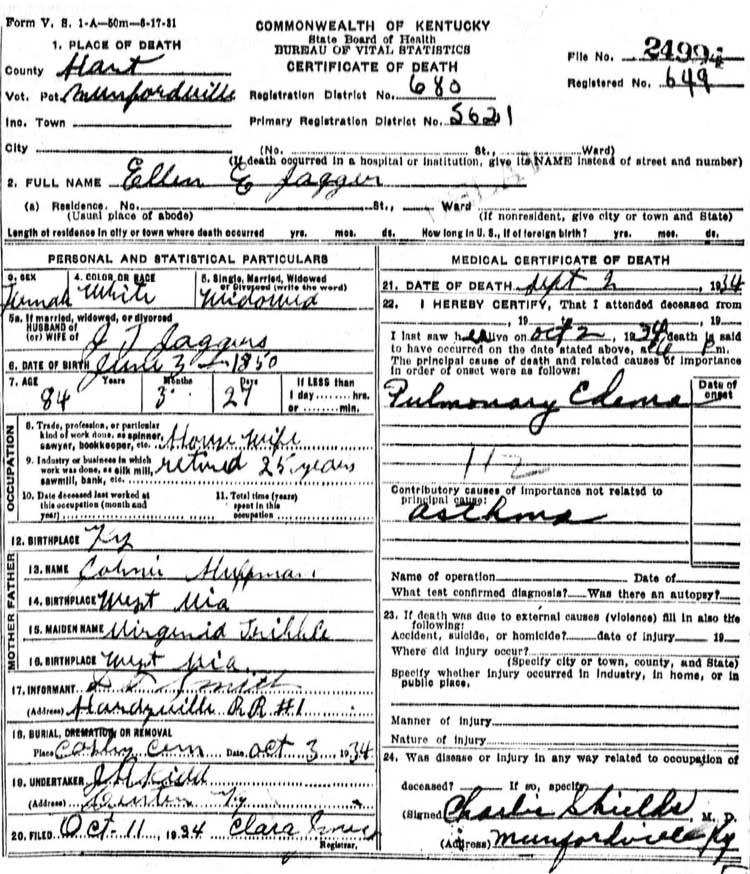 Form V. S. 1-A—50m—6-17-31
COMMONWEALTH OF KENTUCKY
State Board of Health
BUREAU OF VITAL STATISTICS
CERTIFICATE OF DEATH
File No. 2499
Registered No. 649
1. PLACE OF DEATH
County Hart
Vot. Pct. Munfordville
Registration District No. 680
Inc. Town
Primary Registration District No. 5621
City (No. St., Ward)
(If death occurred in a hospital or institution, give its NAME instead of street and number)
2. FULL NAME Ellen E Jagger
(a) Residence. No. St., Ward
(Usual place of abode) (If nonresident, give city or town and State)
Length of residence in city or town where death occurred yrs. mos. ds. How long in U. S., if of foreign birth? yrs. mos. ds.
PERSONAL AND STATISTICAL PARTICULARS
3. SEX
Female
4. COLOR OR RACE
White
5. Single, Married, Widowed or Divorced (write the word)
Widowed
5a. If married, widowed, or divorced
HUSBAND of
(or) WIFE of J T Jaggers
6. DATE OF BIRTH June 3 - 1850
7. AGE Years Months Days If LESS than
84 3 27 1 day hrs.
or min.
OCCUPATION
8. Trade, profession, or particular
kind of work done, as spinner,
sawyer, bookkeeper, etc. House wife
9. Industry or business in which
work was done, as silk mill,
sawmill, bank, etc. retired 25 years
10. Date deceased last worked at
this occupation (month and
year)
11. Total time (years)
spent in this
occupation
12. BIRTHPLACE Ky
FATHER
13. NAME Huffman
14. BIRTHPLACE West Via
MOTHER
15. MAIDEN NAME Virginia Tribble
16. BIRTHPLACE West Via
17. INFORMANT Smith
(Address) Hardyville RR #1
18. BURIAL, CREMATION OR REMOVAL
Place Cem Date Oct 3 1934
19. UNDERTAKER J H Kidd
(Address) Ky
20. FILED Oct-11, 1934 Clara
Registrar.
MEDICAL CERTIFICATE OF DEATH
21. DATE OF DEATH Sept 2, 1934
22. I HEREBY CERTIFY, That I attended deceased from
, 19 , 19
I last saw h alive on Oct 2, 1934, death is said
to have occurred on the date stated above, at m.
The principal cause of death and related causes of importance
in order of onset were as follows:
Date of onset
Pulmonary Edema
112
Contributory causes of importance not related to
principal cause:
asthma
Name of operation Date of
What test confirmed diagnosis? Was there an autopsy?
23. If death was due to external causes (violence) fill in also the
following:
Accident, suicide, or homicide? date of injury 19
Where did injury occur?
(Specify city or town, county, and State)
Specify whether injury occurred in industry, in home, or in
public place.
Manner of injury
Nature of injury
24. Was disease or injury in any way related to occupation of
deceased? If so, specify
(Signed) Charlie Shields, M. D.
(Address) Munfordville Ky